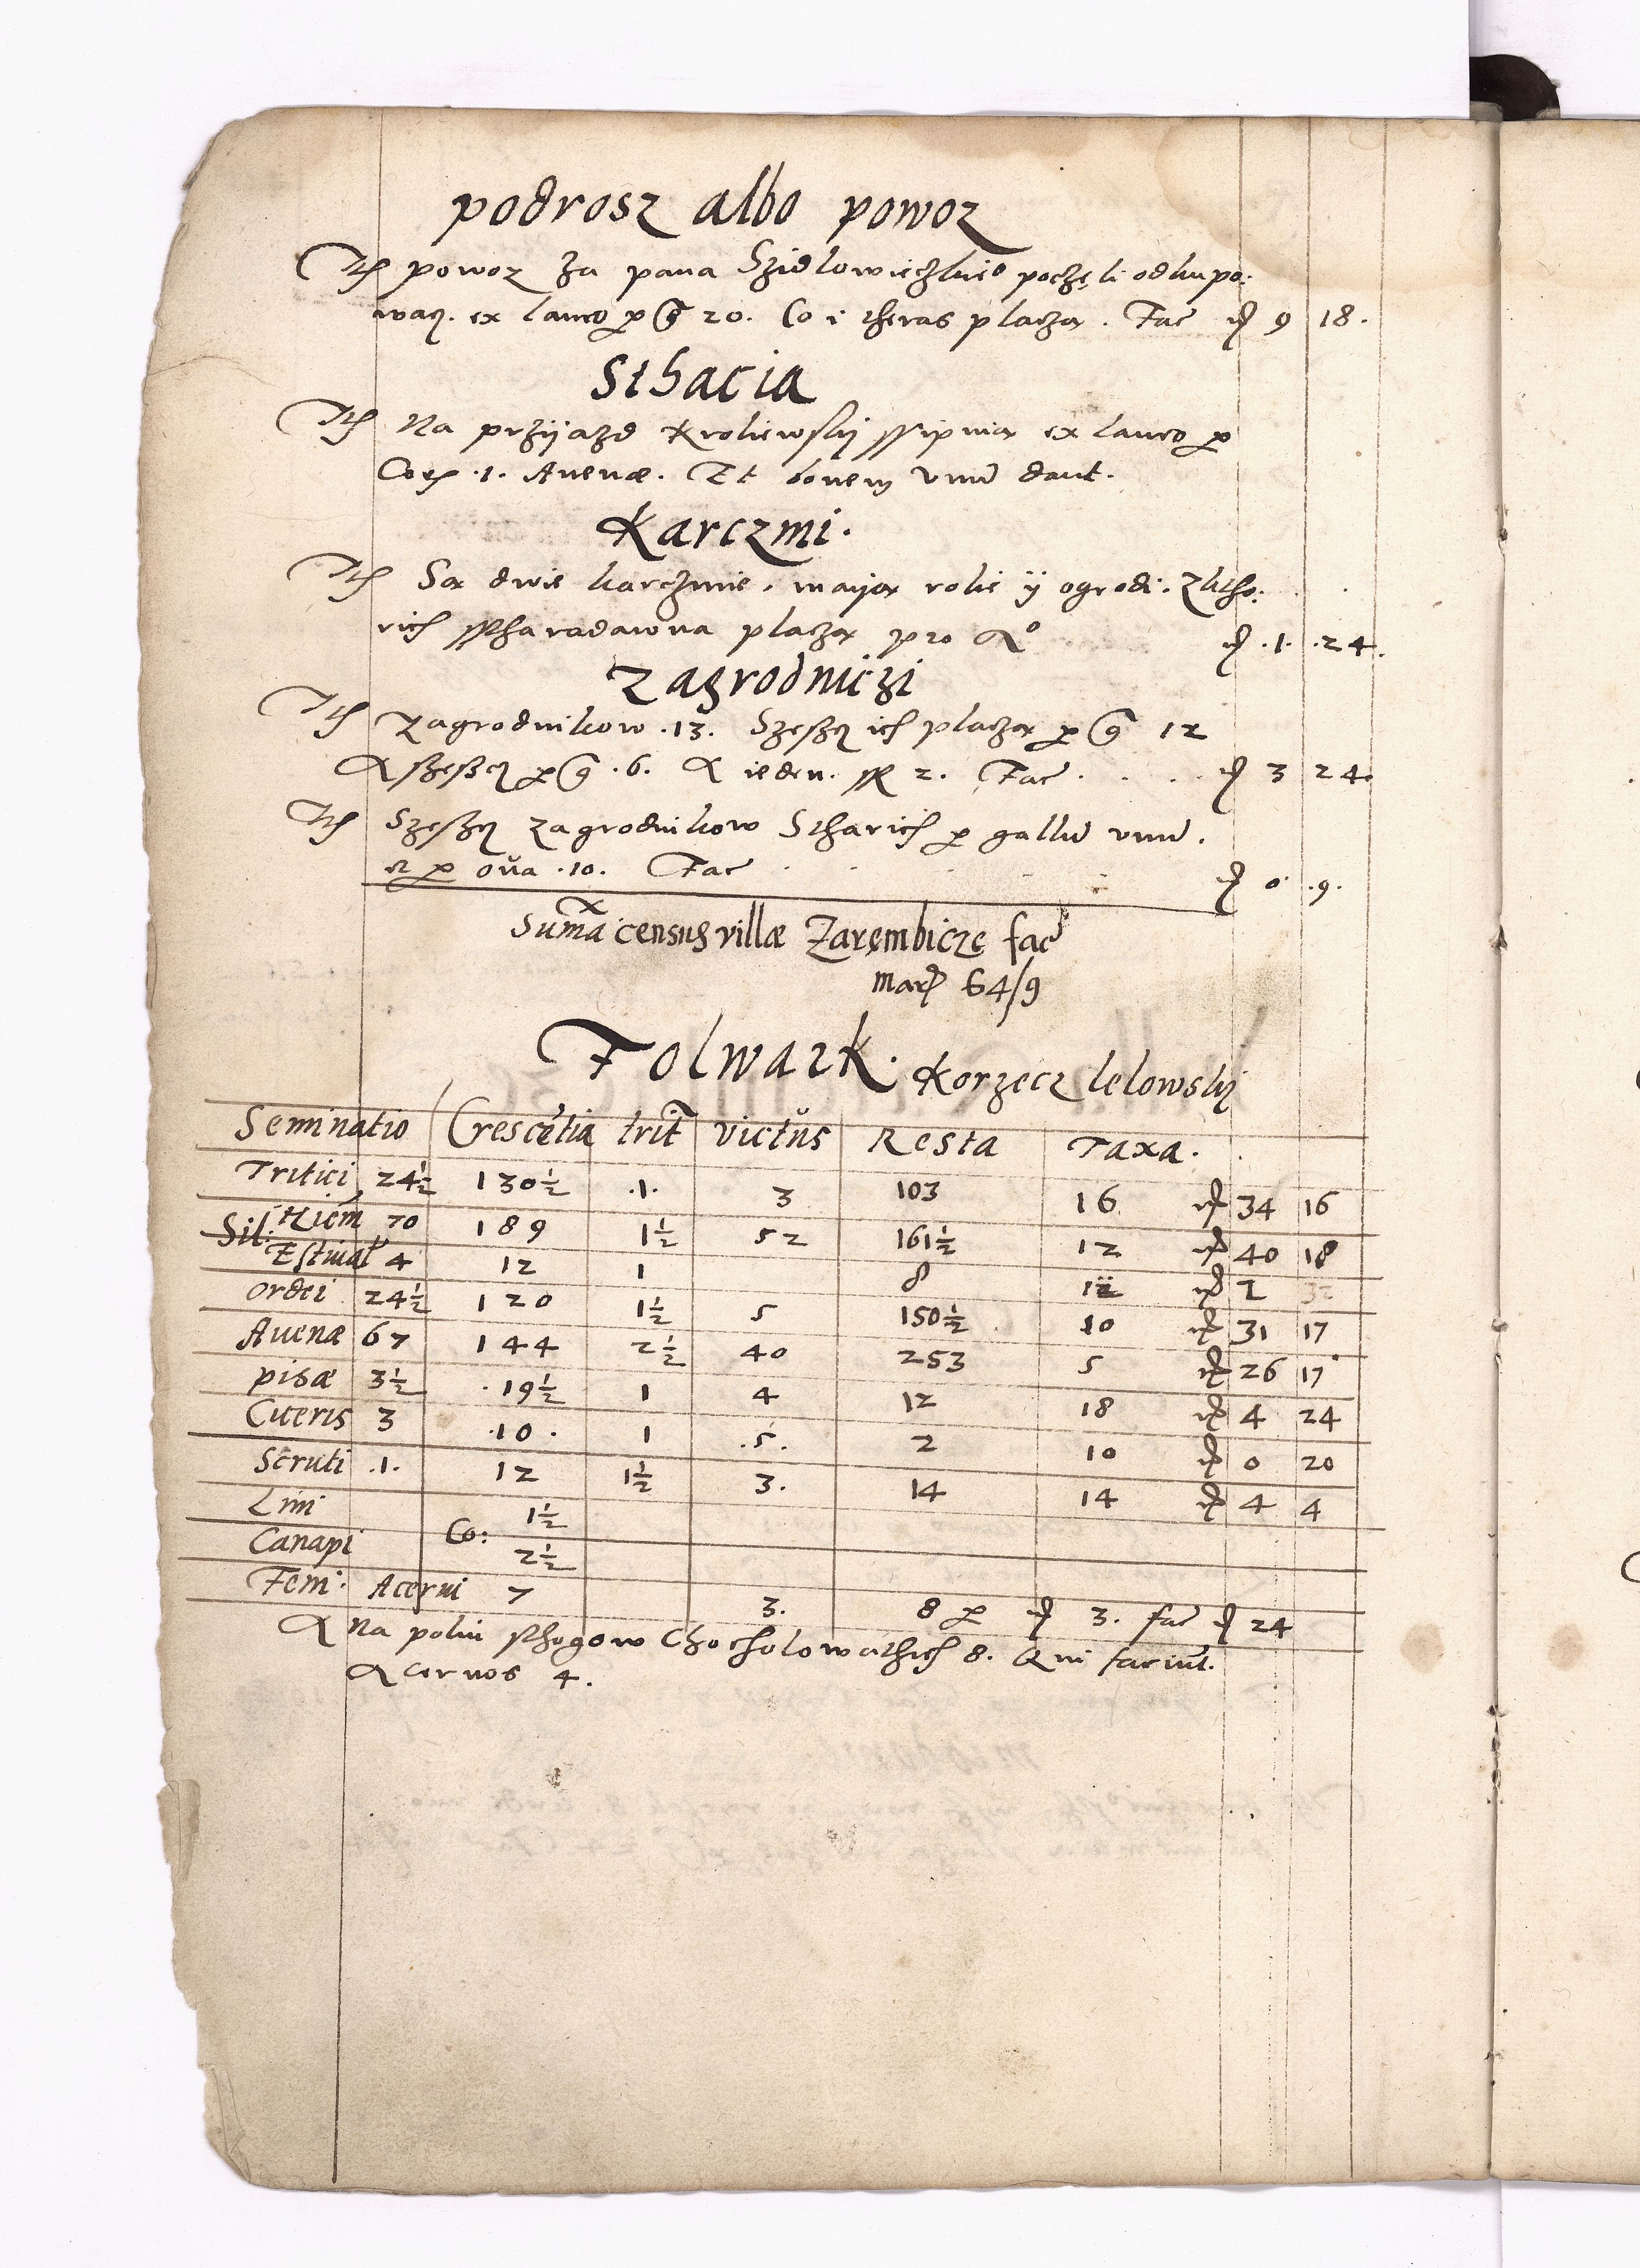 podrosz albo powoz
Ith powoz za pana Szidlowieczkieo poczęli odkupo:
wacz. ex laneo p g 20. Co i theras placza. Fac mr 9 18.
Sthacia
Ith Na przijazd Kroliewskij ssipuia ex laneo p
Cor .1. Auenæ. Et bouem vnu dant.
Karczmi.
Ith Sa dwie karczmie, maija rolie ij ogrodi. Zktho:
rich sstharadawna placza pro Ao mr .1. .24.
Zagrodniczi
Ith Zagrodnikow .13. Szescz ich placza p g 12
A szescz p g .6. A ieden. 2. Fac mr 3 24.
Ith Szescz Zagrodnikow Stharich p gallu vnu.
et p oua .10. Fac mr 0 .9.
Suma census villæ Zarembicze fac
mar 64/9
Folwark. Korzecz lelowskij
Seminatio Crescetia trit victus Resta Taxa.
Tritici 24½ 130½ .1. 3 103 16 mr 34 16
Sil: Hiem 70 189 1½ 52 161½ 12 mr 40 18
Estiual 4 12 1 8 12 mr 2 32
Ordei 24½ 120 1½ 5 150½ 10 mr 31 17
Auenæ 67 144 2½ 40 253 5 mr 26 17
pisæ 3½ .19½ 1 4 12 18 mr 4 24
Ciceris 3 .10. 1 .5. 2 10 mr 0 20
Scruti .1. 12 1½ 3. 14 14 mr 4 4
Lini Co: 1½
Canapi 2½
Feni. Acerui 7 3. 8 p mr 3. fac mr 24
A Na poliu sthogow Chocholowathich 8. Qui faciut.
Aceruos 4.